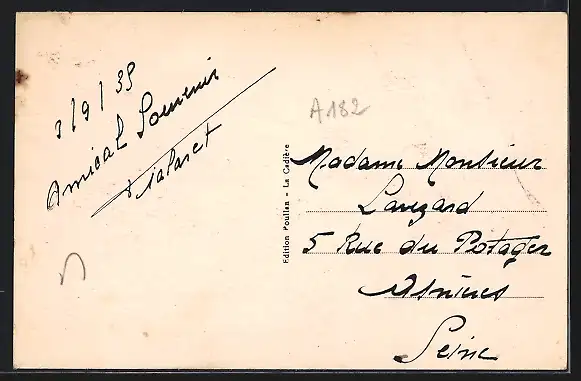 3/9/35
Amical Souvenir
A182
Edition Poullan - La Cadière
Madame Monsieur
Lauzard
5 Rue du Potager
Asnières
Seine